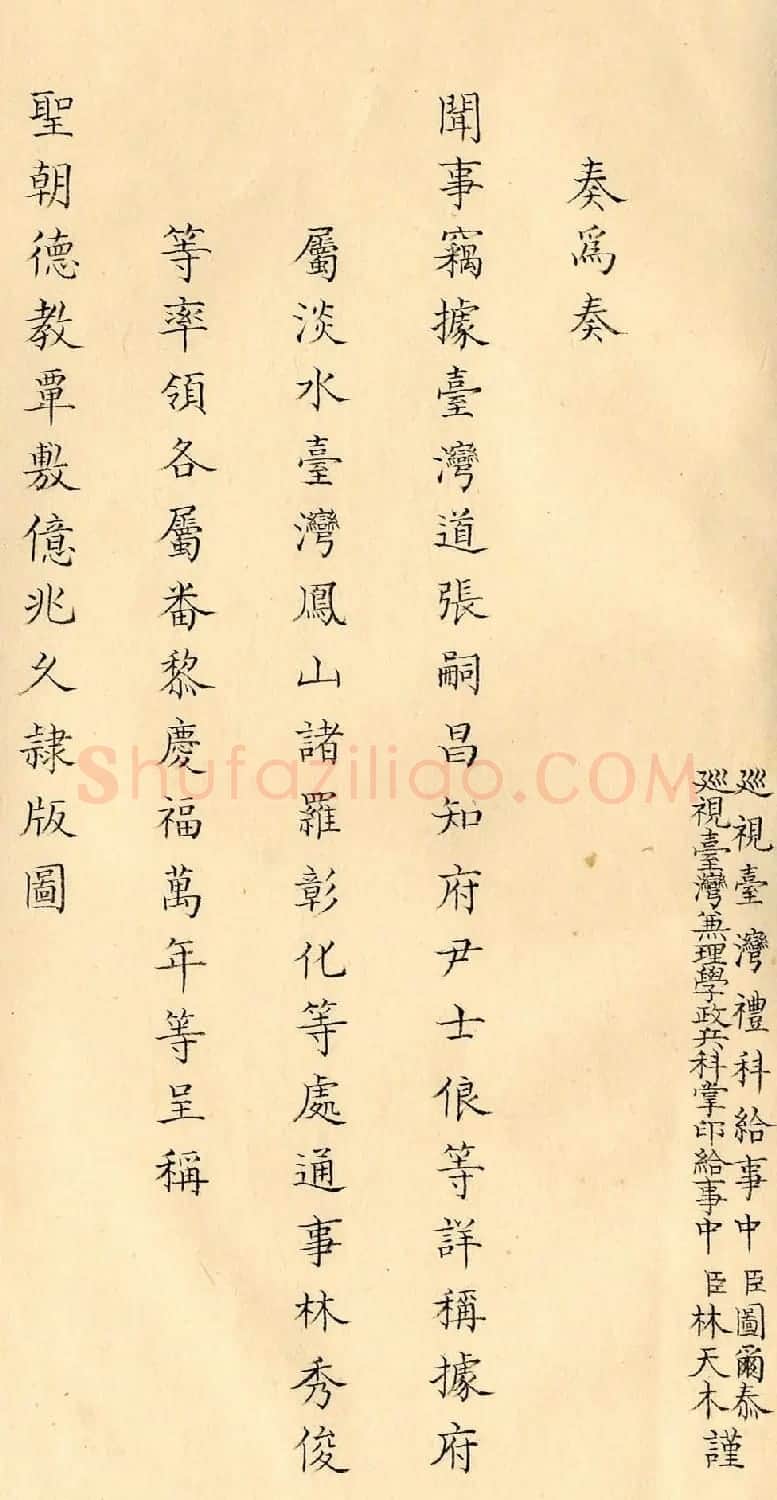 巡視臺灣禮科給事中臣圖爾泰
巡視臺灣兼理學政兵科掌印給事中臣林天木
謹
奏為奏
聞事竊據臺灣道張嗣昌知府尹士俍等詳稱據府
屬淡水臺灣鳳山諸羅彰化等處通事林秀俊
等率領各屬番黎慶福萬年等呈稱
聖朝德教覃敷億兆久隸版圖
Shufaziliao.COM